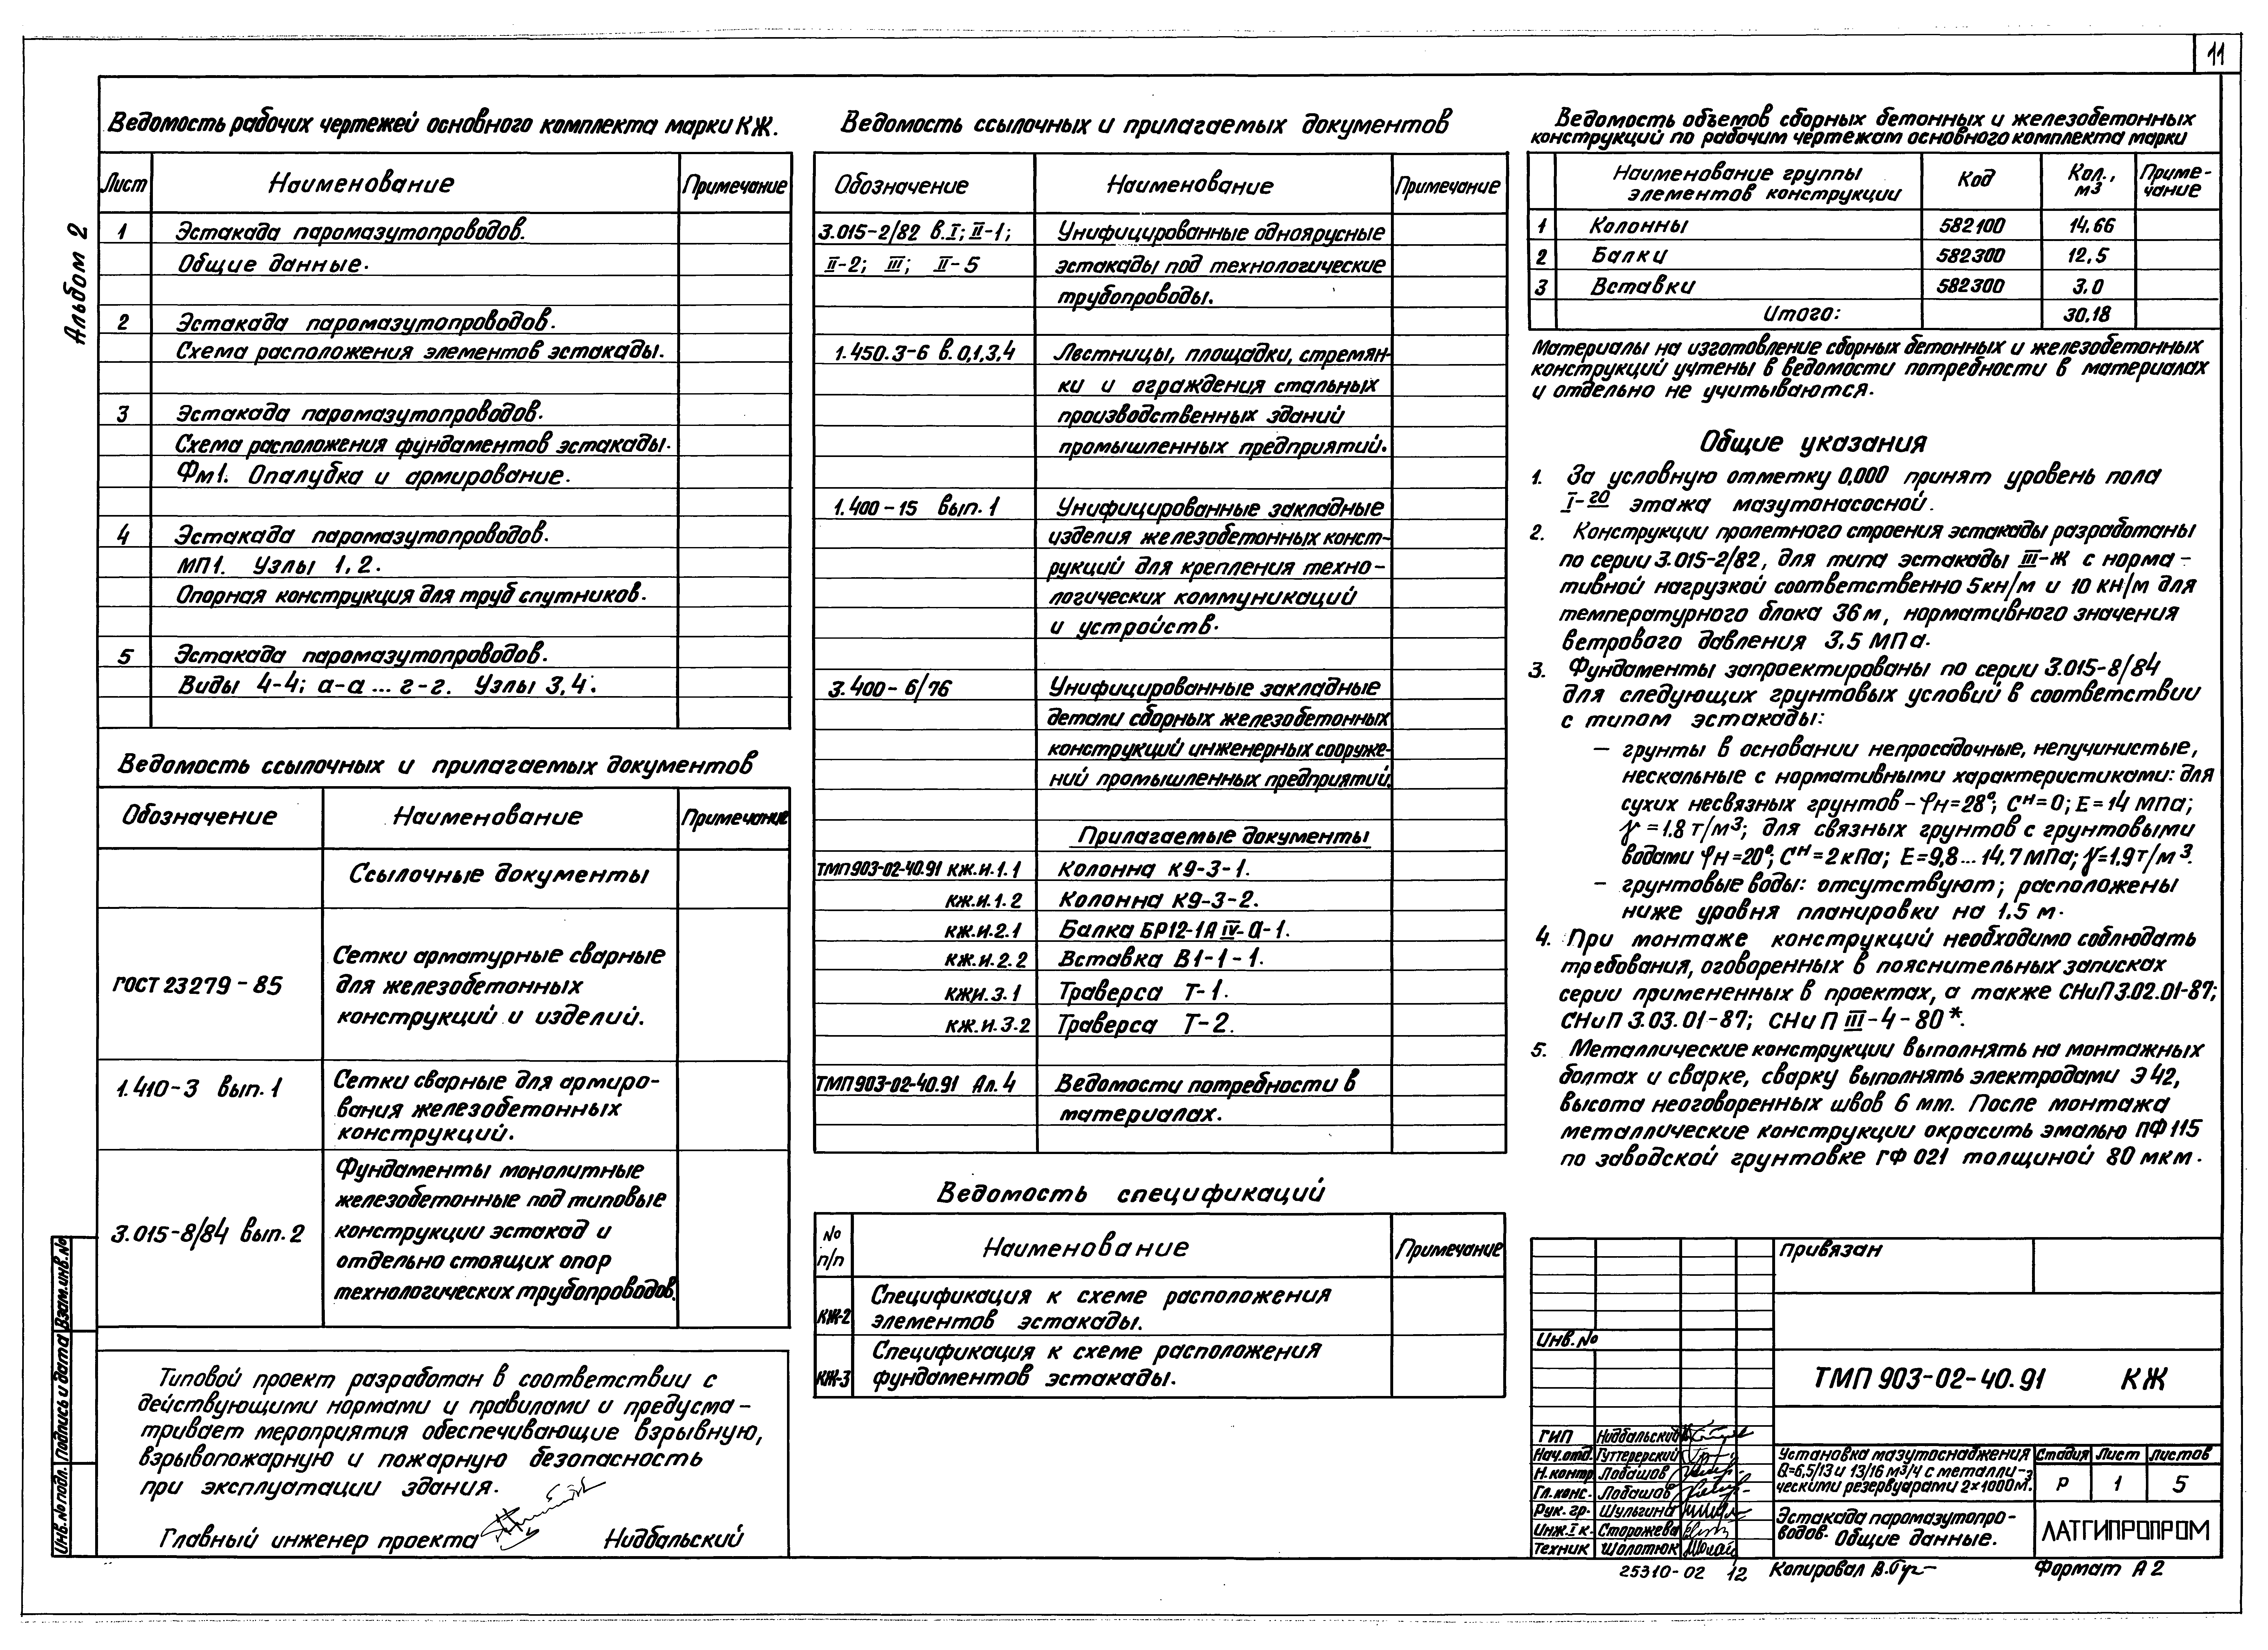 11
Альбом 2
Ведомость рабочих чертежей основного комплекта марки КЖ.
Лист Наименование Примечание
1 Эстакада паромазутопроводов.
Общие данные.
2 Эстакада паромазутопроводов.
Схема расположения элементов эстакады.
3 Эстакада паромазутопроводов.
Схема расположения фундаментов эстакады.
Фм1. Опалубка и армирование.
4 Эстакада паромазутопроводов.
МП1. Узлы 1, 2.
Опорная конструкция для труб спутников.
5 Эстакада паромазутопроводов.
Виды 4-4; а-а ... г-г. Узлы 3, 4.
Ведомость ссылочных и прилагаемых документов
Обозначение Наименование Примечание
Ссылочные документы
Сетки арматурные сварные
ГОСТ 23279-85 для железобетонных
конструкций и изделий.
1.410-3 вып. 1 Сетки сварные для армиро-
вания железобетонных
конструкций.
Фундаменты монолитные
железобетонные под типовые
3.015-8/84 вып. 2 конструкции эстакад и
отдельно стоящих опор
технологических трубопроводов.
Типовой проект разработан в соответствии с
действующими нормами и правилами и предусма-
тривает мероприятия обеспечивающие взрывную,
взрывопожарную и пожарную безопасность
при эксплуатации здания.
Главный инженер проекта Нидбальский
Взам.инв.№
Подпись и дата
Инв.№ подл.
Ведомость ссылочных и прилагаемых документов
Обозначение Наименование Примечание
3.015-2/82 в.I; II-1; Унифицированные одноярусные
II-2; III; II-5 эстакады под технологические
трубопроводы.
1.450.3-6 в.0,1,3,4 Лестницы, площадки, стремян-
ки и ограждения стальных
производственных зданий
промышленных предприятий.
1.400-15 вып. 1 Унифицированные закладные
изделия железобетонных конст-
рукций для крепления техно-
логических коммуникаций
и устройств.
3.400-6/76 Унифицированные закладные
детали сборных железобетонных
конструкций инженерных сооруже-
ний промышленных предприятий.
Прилагаемые документы
ТМП903-02-40.91 кж.и.1.1 Колонна К9-3-1.
кж.и.1.2 Колонна К9-3-2.
кж.и.2.1 Балка БР12-1А IV-а-1.
кж.и.2.2 Вставка В1-1-1.
кжи.3.1 Траверса Т-1.
кж.и.3.2 Траверса Т-2.
ТМП903-02-40.91 Ал. 4 Ведомости потребности в
материалах.
Ведомость спецификаций
№ п/п Наименование Примечание
КЖ-2 Спецификация к схеме расположения
элементов эстакады.
КЖ-3 Спецификация к схеме расположения
фундаментов эстакады.
Ведомость объемов сборных бетонных и железобетонных
конструкций по рабочим чертежам основного комплекта марки
Наименование группы элементов конструкции Код Кол., м3 Приме-чание
1 Колонны 582100 14,66
2 Балки 582300 12,5
3 Вставки 582300 3.0
Итого: 30.18
Материалы на изготовление сборных бетонных и железобетонных
конструкций учтены в ведомости потребности в материалах
и отдельно не учитываются.
Общие указания
1. За условную отметку 0,000 принят уровень пола
I-го этажа мазутонасосной.
2. Конструкции пролетного строения эстакады разработаны
по серии 3.015-2/82, для типа эстакады III-Ж с норма-
тивной нагрузкой соответственно 5кн/м и 10 кн/м для
температурного блока 36 м, нормативного значения
ветрового давления 3,5 МПа.
3. Фундаменты запроектированы по серии 3.015-8/84
для следующих грунтовых условий в соответствии
с типом эстакады:
— грунты в основании непросадочные, непучинистые,
нескальные с нормативными характеристиками: для
сухих несвязных грунтов - φн=28°; Cн=0; E=14 МПа;
γ=1.8 т/м3; для связных грунтов с грунтовыми
водами φн=20°; Cн=2кПа; E=9,8...14,7 МПа; γ=1,9т/м3.
— грунтовые воды: отсутствуют; расположены
ниже уровня планировки на 1.5 м.
4. При монтаже конструкций необходимо соблюдать
требования, оговоренных в пояснительных записках
серии примененных в проектах, а также СНиП 3.02.01-87;
СНиП 3.03.01-87; СНиП III-4-80*.
5. Металлические конструкции выполнять на монтажных
болтах и сварке, сварку выполнять электродами Э42,
высота неоговоренных швов 6 мм. После монтажа
металлические конструкции окрасить эмалью ПФ 115
по заводской грунтовке ГФ 021 толщиной 80 мкм.
привязан
Инв.№
ТМП 903-02-40.91 КЖ
ГИП Нидбальский
Нач.отд. Гуттерерский
Н.контр Лобашов
Гл.конс. Лобашов
Рук.гр. Шульгина
Инж.I к. Сторожева
Техник Шолотюк
Установка мазутоснабжения
Q=6,5/13 и 13/16 м3/ч с металли-
ческими резервуарами 2×1000м3.
Стадия Лист Листов
Р 1 5
Эстакада паромазутопро-
водов. Общие данные.
ЛАТГИПРОПРОМ
25310-02 12 Копировал Формат А2